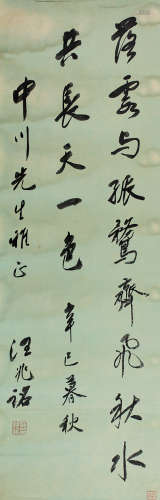 落霞与孤鶩齊飛秋水
共長天一色 辛巳暮秋
中川先生雅正
汪兆銘